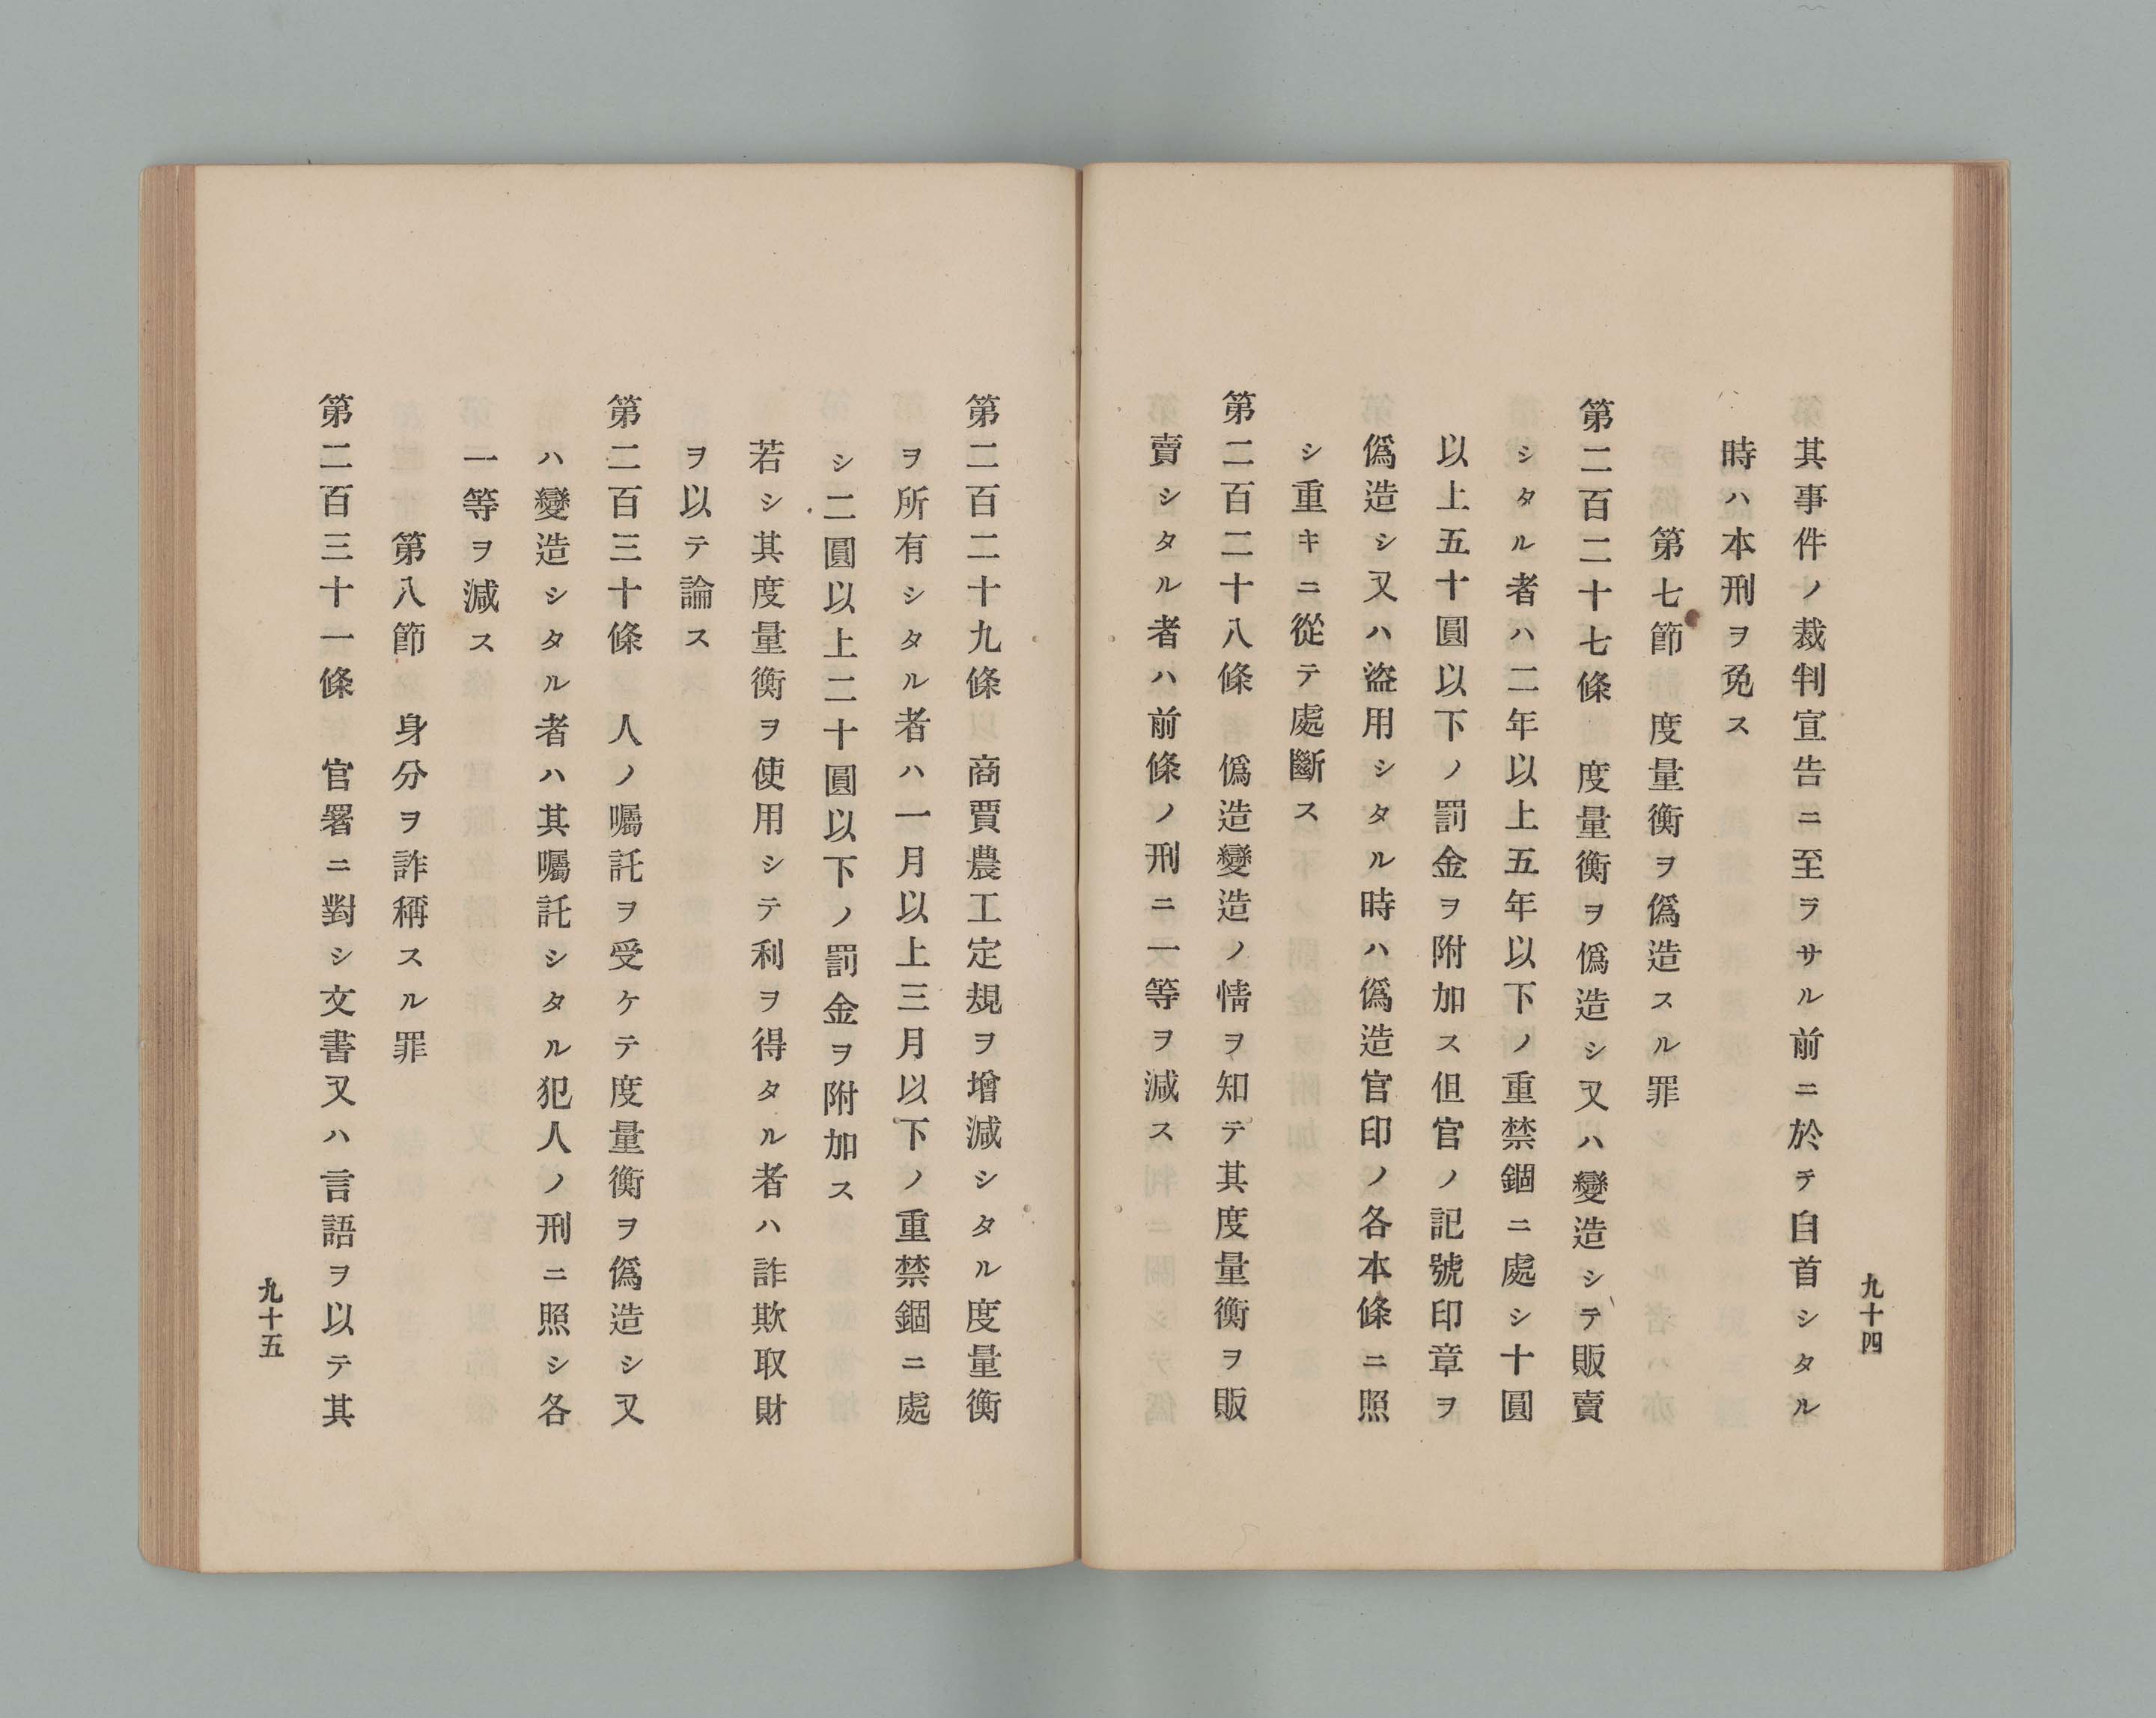 九十四
其事件ノ裁判宣告ニ至ラサル前ニ於テ自首シタル
時ハ本刑ヲ免ス
第七節　度量衡ヲ僞造スル罪
第二百二十七條　度量衡ヲ僞造シ又ハ變造シテ販賣
シタル者ハ二年以上五年以下ノ重禁錮ニ處シ十圓
以上五十圓以下ノ罰金ヲ附加ス但官ノ記號印章ヲ
僞造シ又ハ盜用シタル時ハ僞造官印ノ各本條ニ照
シ重キニ從テ處斷ス
第二百二十八條　僞造變造ノ情ヲ知テ其度量衡ヲ販
賣シタル者ハ前條ノ刑ニ一等ヲ減ス
第二百二十九條　商賈農工定規ヲ增減シタル度量衡
ヲ所有シタル者ハ一月以上三月以下ノ重禁錮ニ處
シ二圓以上二十圓以下ノ罰金ヲ附加ス
若シ其度量衡ヲ使用シテ利ヲ得タル者ハ詐欺取財
ヲ以テ論ス
第二百三十條　人ノ囑託ヲ受ケテ度量衡ヲ僞造シ又
ハ變造シタル者ハ其囑託シタル犯人ノ刑ニ照シ各
一等ヲ減ス
第八節　身分ヲ詐稱スル罪
第二百三十一條　官署ニ對シ文書又ハ言語ヲ以テ其
九十五